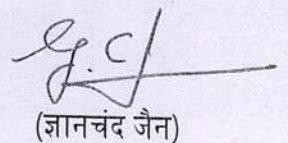 (ज्ञानचंद जैन)